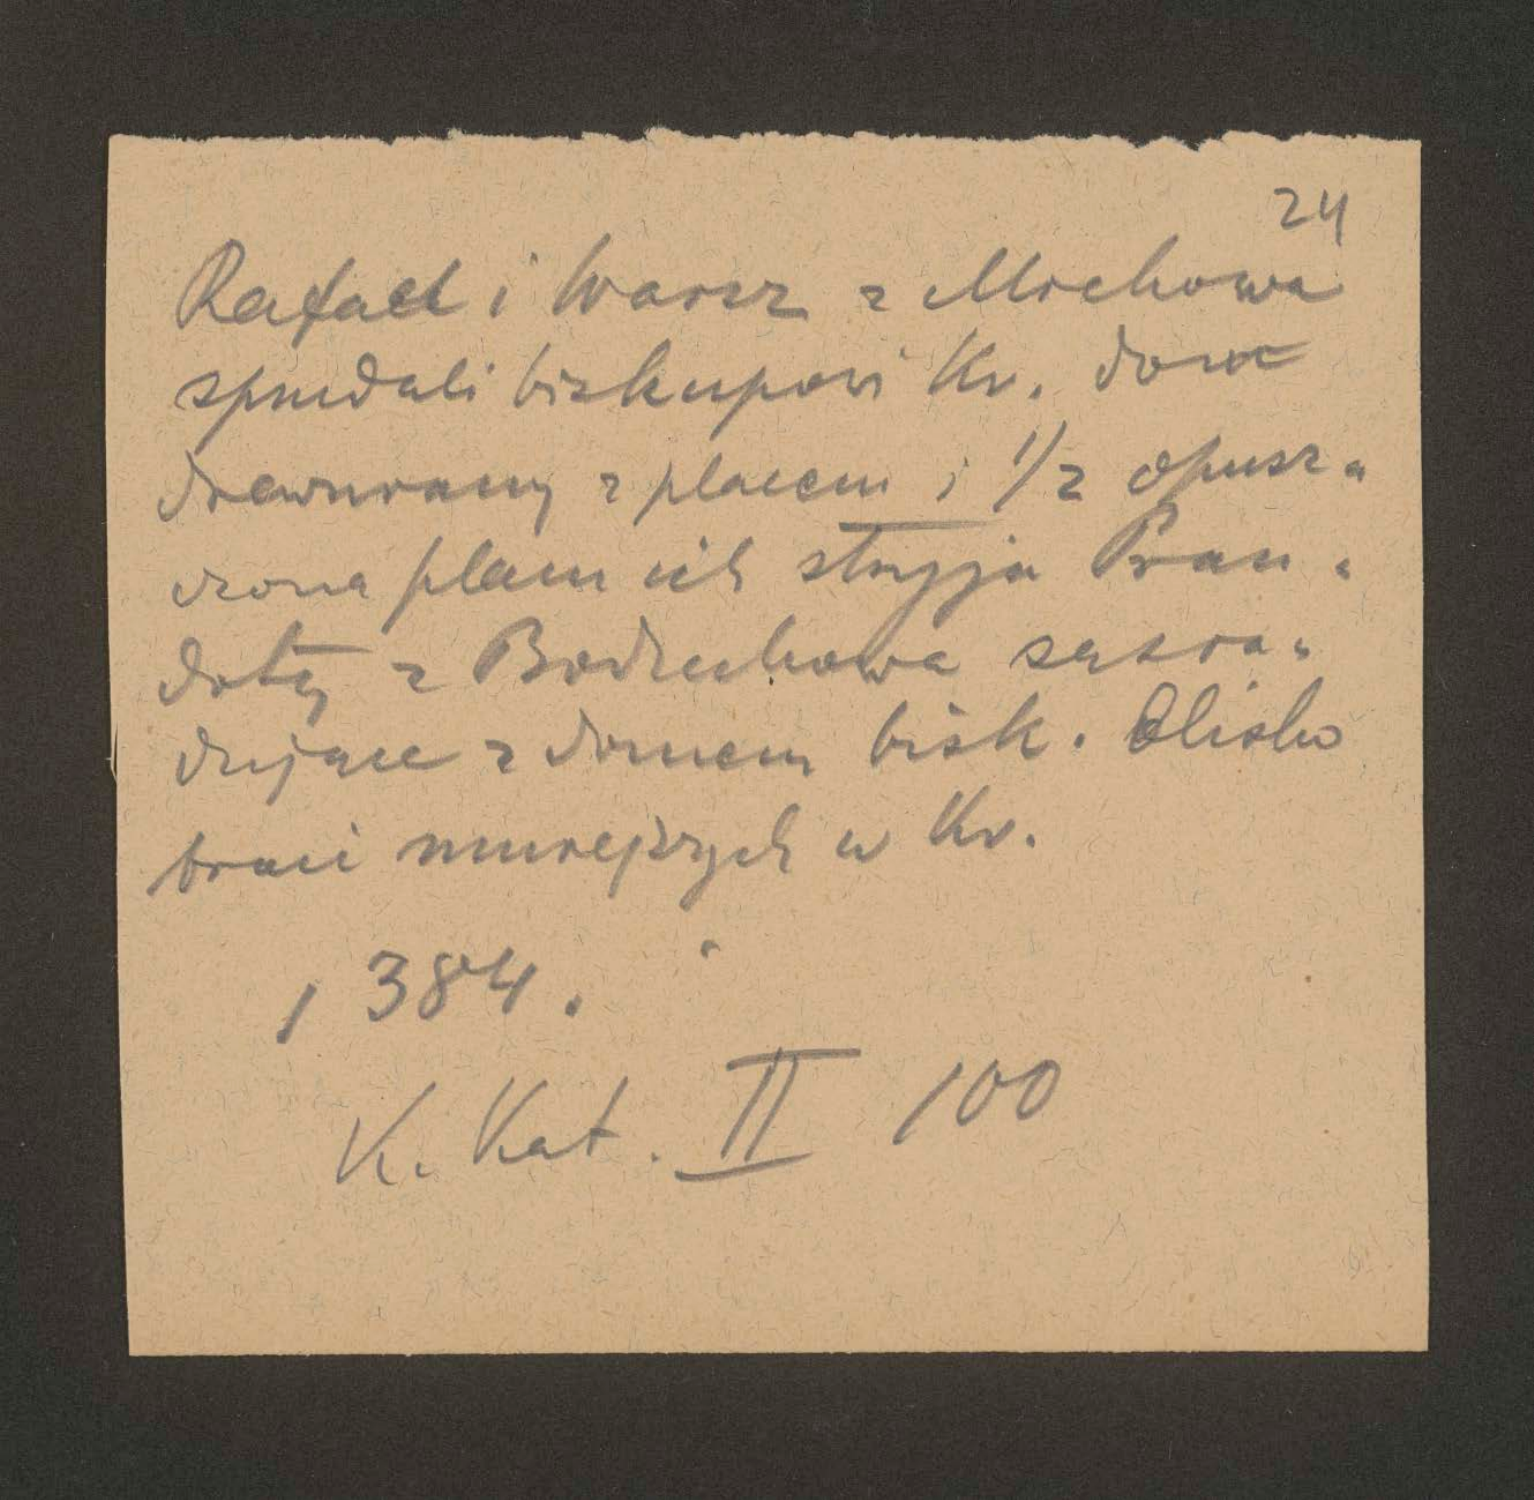 24
Rafael i Warsz z Michowa
sprzedali biskupowi Kr. dom
drewniany z placem i 1/2 opusz-
czona placu ich stryja Pran-
doty z Bodzechowa sąsia-
dujące z domem bisk. blisko
braci mniejszych w Kr.
1384.
K. Kat. II 100